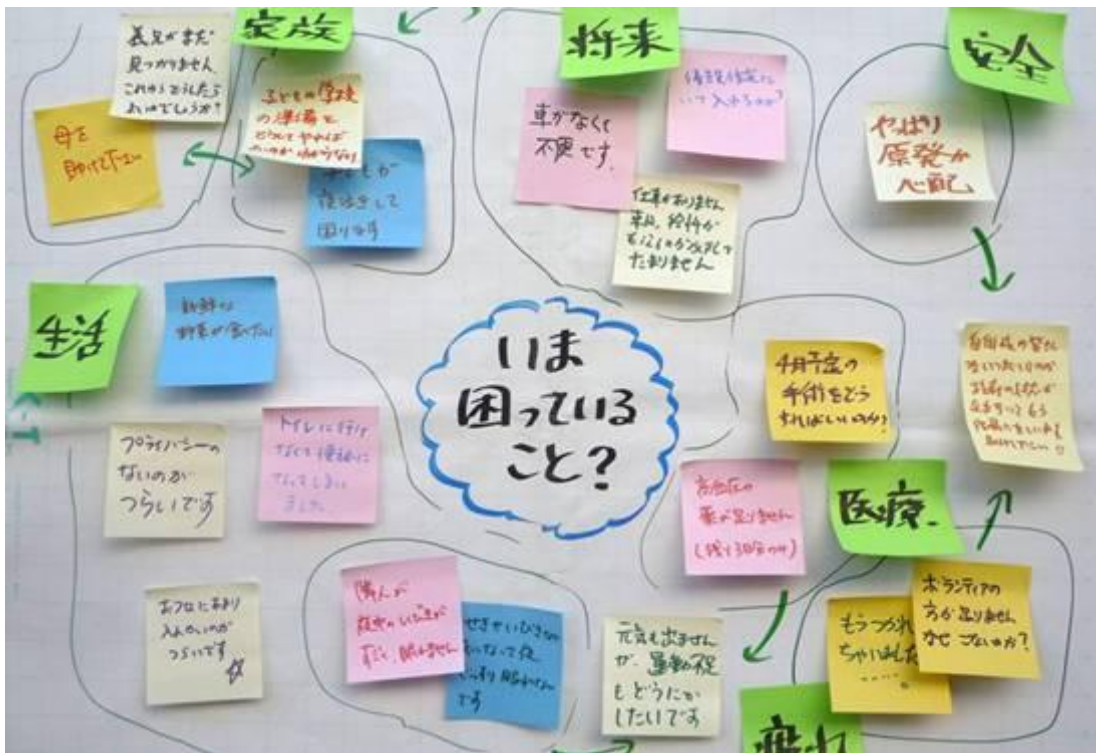 家族
義兄がまだ
見つかりません
これからどうしたら
よいのでしょうか?
母を
助けて下さい
子どもの学校
の準備を
どうしてやれば
いいのかわからない
子どもが
夜泣きして
困ります
将来
車がなくて
不便です。
仮設住宅に
いつ入れるのか?
仕事がありません
たまりません
安全
やっぱり
原発が
心配
生活
新鮮な
野菜が食べたい
プライバシーの
ないのが
つらいです
トイレに行け
なくて便秘に
なってしまい
ました
おフロにあまり
入れないのが
つらいです
いま
困っている
こと?
4月予定の
手術をどう
すればいいのか?
高血圧の
薬が足りません
(残り3日分のみ)
医療.
自衛隊の皆さん
隣人が
夜中のいびきが
すごく、眠れません
です
元気も出ません
が、運動不足
もどうにか
したいです
もうつかれ
ちゃいました
ボランティアの
方が足りません
なぜこないのか?
疲れ
K-T